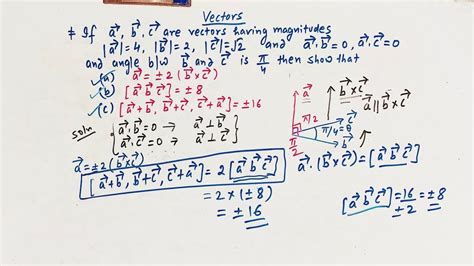 Vectors
* If a⃗, b⃗, c⃗ are vectors having magnitudes
|a⃗|=4, |b⃗|=2, |c⃗|=√2 and a⃗·b⃗=0, a⃗·c⃗=0
and angle b|w b⃗ and c⃗ is π/4 then show that
(a) a⃗ = ±2(b⃗×c⃗)
(b) [a⃗ b⃗ c⃗] = ±8
(c) [a⃗+b⃗, b⃗+c⃗, c⃗+a⃗] = ±16
soln
a⃗·b⃗=0 → a⃗⊥b⃗
a⃗·c⃗=0 → a⃗⊥c⃗
a⃗=±2(b⃗×c⃗)
[a⃗+b⃗, b⃗+c⃗, c⃗+a⃗] = 2[a⃗ b⃗ c⃗]
= 2×(±8)
= ±16
a⃗
b⃗×c⃗
a⃗||b⃗×c⃗
π/2
π/4=θ
c⃗
π/2
b⃗
a⃗·(b⃗×c⃗)=[a⃗ b⃗ c⃗]
[a⃗ b⃗ c⃗]=16/±2=±8